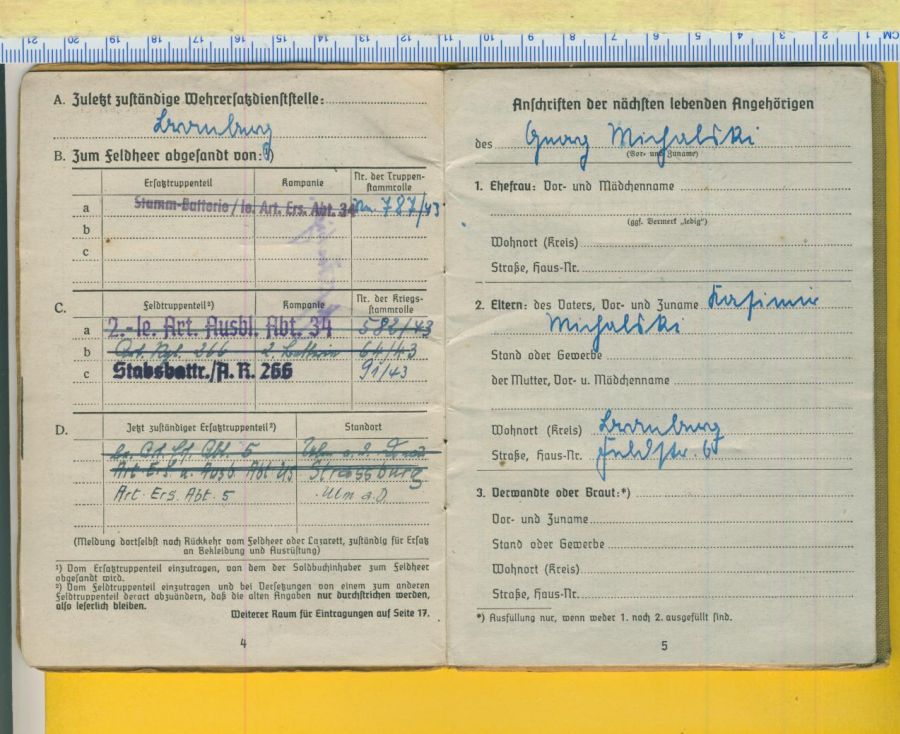 21 20 19 18 17 16 15 14 13 12 11 10 9 8 7 6 5 4 3 2 1 CM
A. Zuletzt zuständige Wehrersatzdienststelle:
B. Zum Feldheer abgesandt von:¹)
Ersatztruppenteil Kompanie Nr. der Truppen-
stammrolle
a Stamm-Batterie/le. Art. Ers. Abt. 34 787/43
b
c
C. Feldtruppenteil²) Kompanie Nr. der Kriegs-
stammrolle
a 2.-le. Art. Ausbl. Abt. 34 582/43
b Art. Rgt. 266 2. Batterie 64/43
c Stabsbattr./A. R. 266 91/43
D. Jetzt zuständiger Ersatztruppenteil²) Standort
Abt. 5 Ulm a. d. Donau
Art Ers u. Ausb Abt Strassburg
Art. Ers. Abt. 5 Ulm a.D
(Meldung dortselbst nach Rückkehr vom Feldheer oder Lazarett, zuständig für Ersatz
an Bekleidung und Ausrüstung)
¹) Vom Ersatztruppenteil einzutragen, von dem der Soldbuchinhaber zum Feldheer
abgesandt wird.
²) Vom Feldtruppenteil einzutragen und bei Versetzungen von einem zum anderen
Feldtruppenteil derart abzuändern, daß die alten Angaben nur durchstrichen werden,
also leserlich bleiben.
Weiterer Raum für Eintragungen auf Seite 17.
4
Anschriften der nächsten lebenden Angehörigen
des Georg Michalski
(Vor- und Zuname)
1. Ehefrau: Vor- und Mädchenname
(ggf. Vermerk „ledig")
Wohnort (Kreis)
Straße, Haus-Nr.
2. Eltern: des Vaters, Vor- und Zuname Kasimir
Michalski
Stand oder Gewerbe
der Mutter, Vor- u. Mädchenname
Wohnort (Kreis)
Straße, Haus-Nr. Feldstr.
3. Verwandte oder Braut:*)
Vor- und Zuname
Stand oder Gewerbe
Wohnort (Kreis)
Straße, Haus-Nr.
*) Ausfüllung nur, wenn weder 1. noch 2. ausgefüllt sind.
5